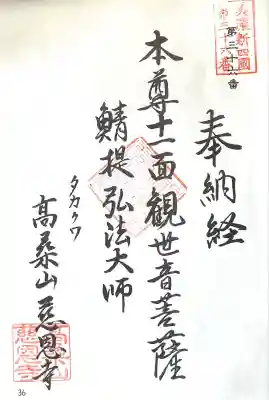 第三十六番
奉納経
本尊十一面観世音菩薩
鯖提弘法大師
タカクワ
高桑山慈恩寺
36